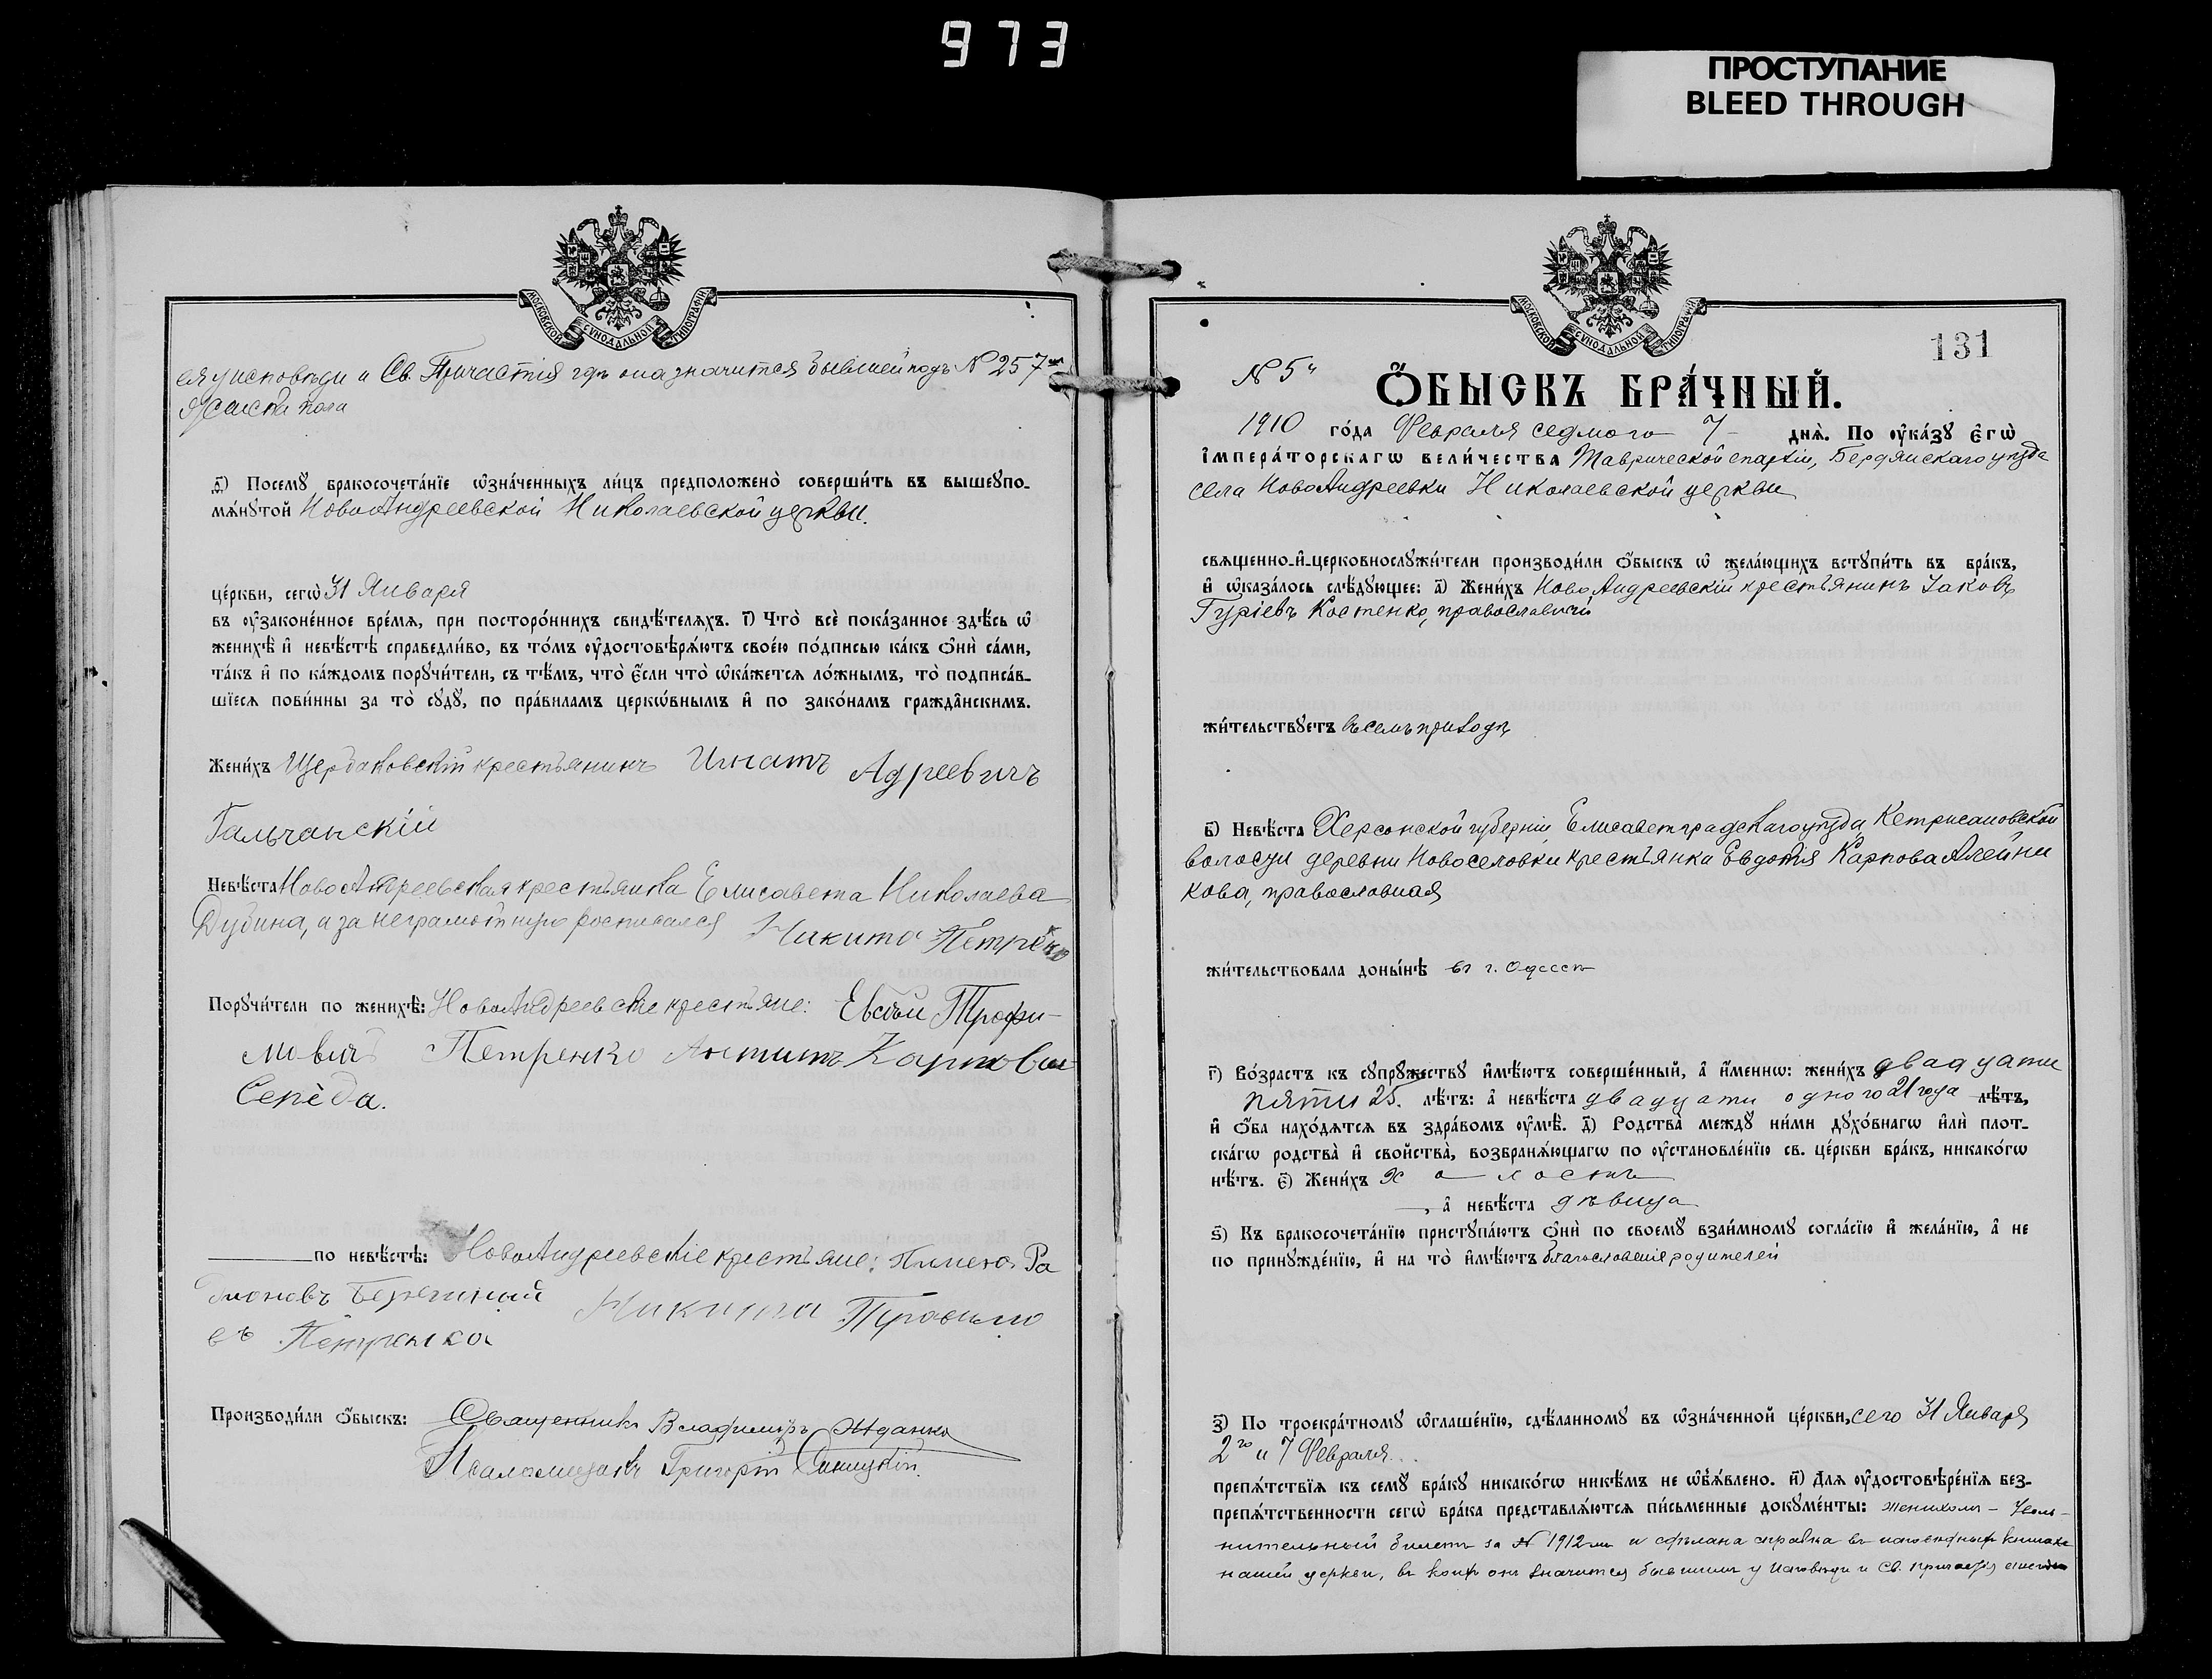 973
ПРОСТУПАНИЕ
BLEED THROUGH
МОСКОВСКОЙ СѴНОДАЛЬНОЙ ТИПОГРАФІИ
ея у исповѣди и Св. Причастія гдѣ она значится бывшей подъ № 257
женска пола
д҃) Посемꙋ бракосочета́нїе ѡ҆зна́ченныхъ ли́цъ предположено̀ соверши́ть въ вышеꙋпо-
мѧ́нꙋтой НовоАндреевской Николаевской церкви.
це́ркви, сегѡ̀ 31 Января
въ ᲂу҆законе́нное вре́мѧ, при посторо́ннихъ свидѣ́телѧхъ. і҃) Что̀ всѐ пока́занное здѣ́сь ѡ҆
женихѣ̀ и҆ невѣ́стѣ справедли́во, въ то́мъ ᲂу҆достовѣрѧ́ютъ свое́ю по́дписью ка́къ ѻ҆нѝ са́ми,
та́къ и҆ по ка́ждомъ порꙋчи́тели, съ тѣ́мъ, что̀ є҆́сли что̀ ѡ҆ка́жется ло́жнымъ, то̀ подписа́в-
шїеся пови́нны за то̀ сꙋдꙋ̀, по пра́виламъ церкѡ́внымъ и҆ по зако́намъ гражда̑нскимъ.
Жени́хъ Щербаковскій крестьянинъ Игнатъ Адреевичъ
Гальчанскій
Невѣ́ста НовоАндреевская крестьянка Елисавета Николаева
Дубина, а за неграмотную росписался Никита Петренко
Порꙋчи́тели по женихѣ̀: НовоАндреевскіе крестьяне: Евсѣй Трофи-
мовичъ Петренко Антипъ Карпови
Середа.
по невѣ́стѣ: НовоАндреевскіе крестьяне: Пимено Ра
Никита
въ Петренко
Производи́ли ѻ҆́быскъ: Священникъ Владиміръ Жданко
Псаломщикъ Григорій Синицкій.
МОСКОВСКОЙ СѴНОДАЛЬНОЙ ТИПОГРАФІИ
131
№ 5
Ѻ҆́БЫСКЪ БРА́ЧНЫЙ.
1910 го́да Февраля седмого 7 днѧ̀. По ᲂу҆ка́зꙋ є҆гѡ̀
і҆мпера́торскагѡ вели́чества Таврической епархіи, Бердянскаго уѣзда
села НовоАндреевки Николаевской церкви
свѧще́нно-и҆-церковнослꙋжи́тели производи́ли ѻ҆́быскъ ѡ҆ жела́ющихъ встꙋпи́ть въ бра́къ,
и҆ ѡ҆каза́лось слѣ́дꙋющее: а҃) Жени́хъ НовоАндреевскій крестьянинъ Іаковъ
Гуріевъ Костенко, православный
жи́тельствꙋетъ въ семъ приходѣ
в҃) Невѣ́ста Херсонской губерніи Елисаветградскаго уѣзда Кетрисановской
волости деревни Новоселовки крестьянка Евдокія Карпова Алейни
кова, православная
жи́тельствовала доны́нѣ въ г. Одессѣ
г҃) Во́зрастъ къ сꙋпрꙋ́жествꙋ и҆мѣ́ютъ соверше́нный, а҆ и҆́меннѡ: жени́хъ двадцати
пяти 25. лѣ́тъ: а҆ невѣ́ста двадцати одного 21 года лѣ́тъ,
и҆ ѻ҆́ба нахо́дятся въ здра́вомъ ᲂу҆мѣ̀. д҃) Родства̀ междꙋ̀ ни́ми дꙋхо́внагѡ и҆лѝ плот-
ска́гѡ родства̀ и҆ сво́йства, возбранѧ́ющагѡ по ᲂу҆становле́нїю св. це́ркви бра́къ, никако́гѡ
нѣ́тъ. є҃) Жени́хъ холостъ
а҆ невѣ́ста дѣвица
ѕ҃) Къ бракосочета́нїю пристꙋпа́ютъ ѻ҆нѝ по своемꙋ̀ взаи́мномꙋ согла́сїю и҆ жела́нїю, а҆ не
по принꙋжде́нїю, и҆ на то̀ и҆мѣ́ютъ благословеніе родителей
з҃) По троекра́тномꙋ ѡ҆глаше́нїю, сдѣ́ланномꙋ въ ѡ҆зна́ченной це́ркви, сего 31 Января
2го и 7 Февраля
препѧ́тствїя къ семꙋ̀ бра́кꙋ никако́гѡ никѣ́мъ не ѡ҆б̾ѧ́влено. и҃) Для ᲂу҆достовѣре́нїя без-
препѧ́тственности сегѡ̀ бра́ка представлѧ́ются пи́сьменные докꙋме́нты: женихомъ – Уволь-
нительный билетъ за № 1912 и сдѣлана справка въ исповѣдныхъ книгахъ
нашей церкви, въ коихъ онъ значится бывшимъ у исповѣди и Св. Причастія